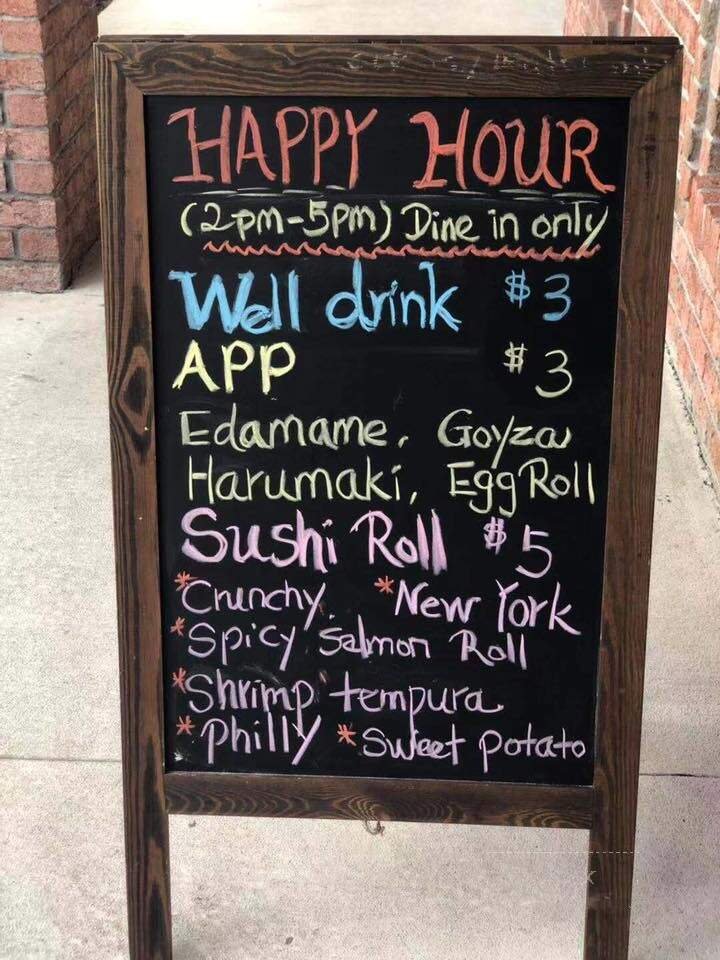 HAPPY HOUR
(2pm-5pm) Dine in only
Well drink $3
APP $3
Edamame, Goyza
Harumaki, Egg Roll
Sushi Roll $5
*Crunchy *New York
*Spicy Salmon Roll
*Shrimp tempura
*Philly *Sweet potato